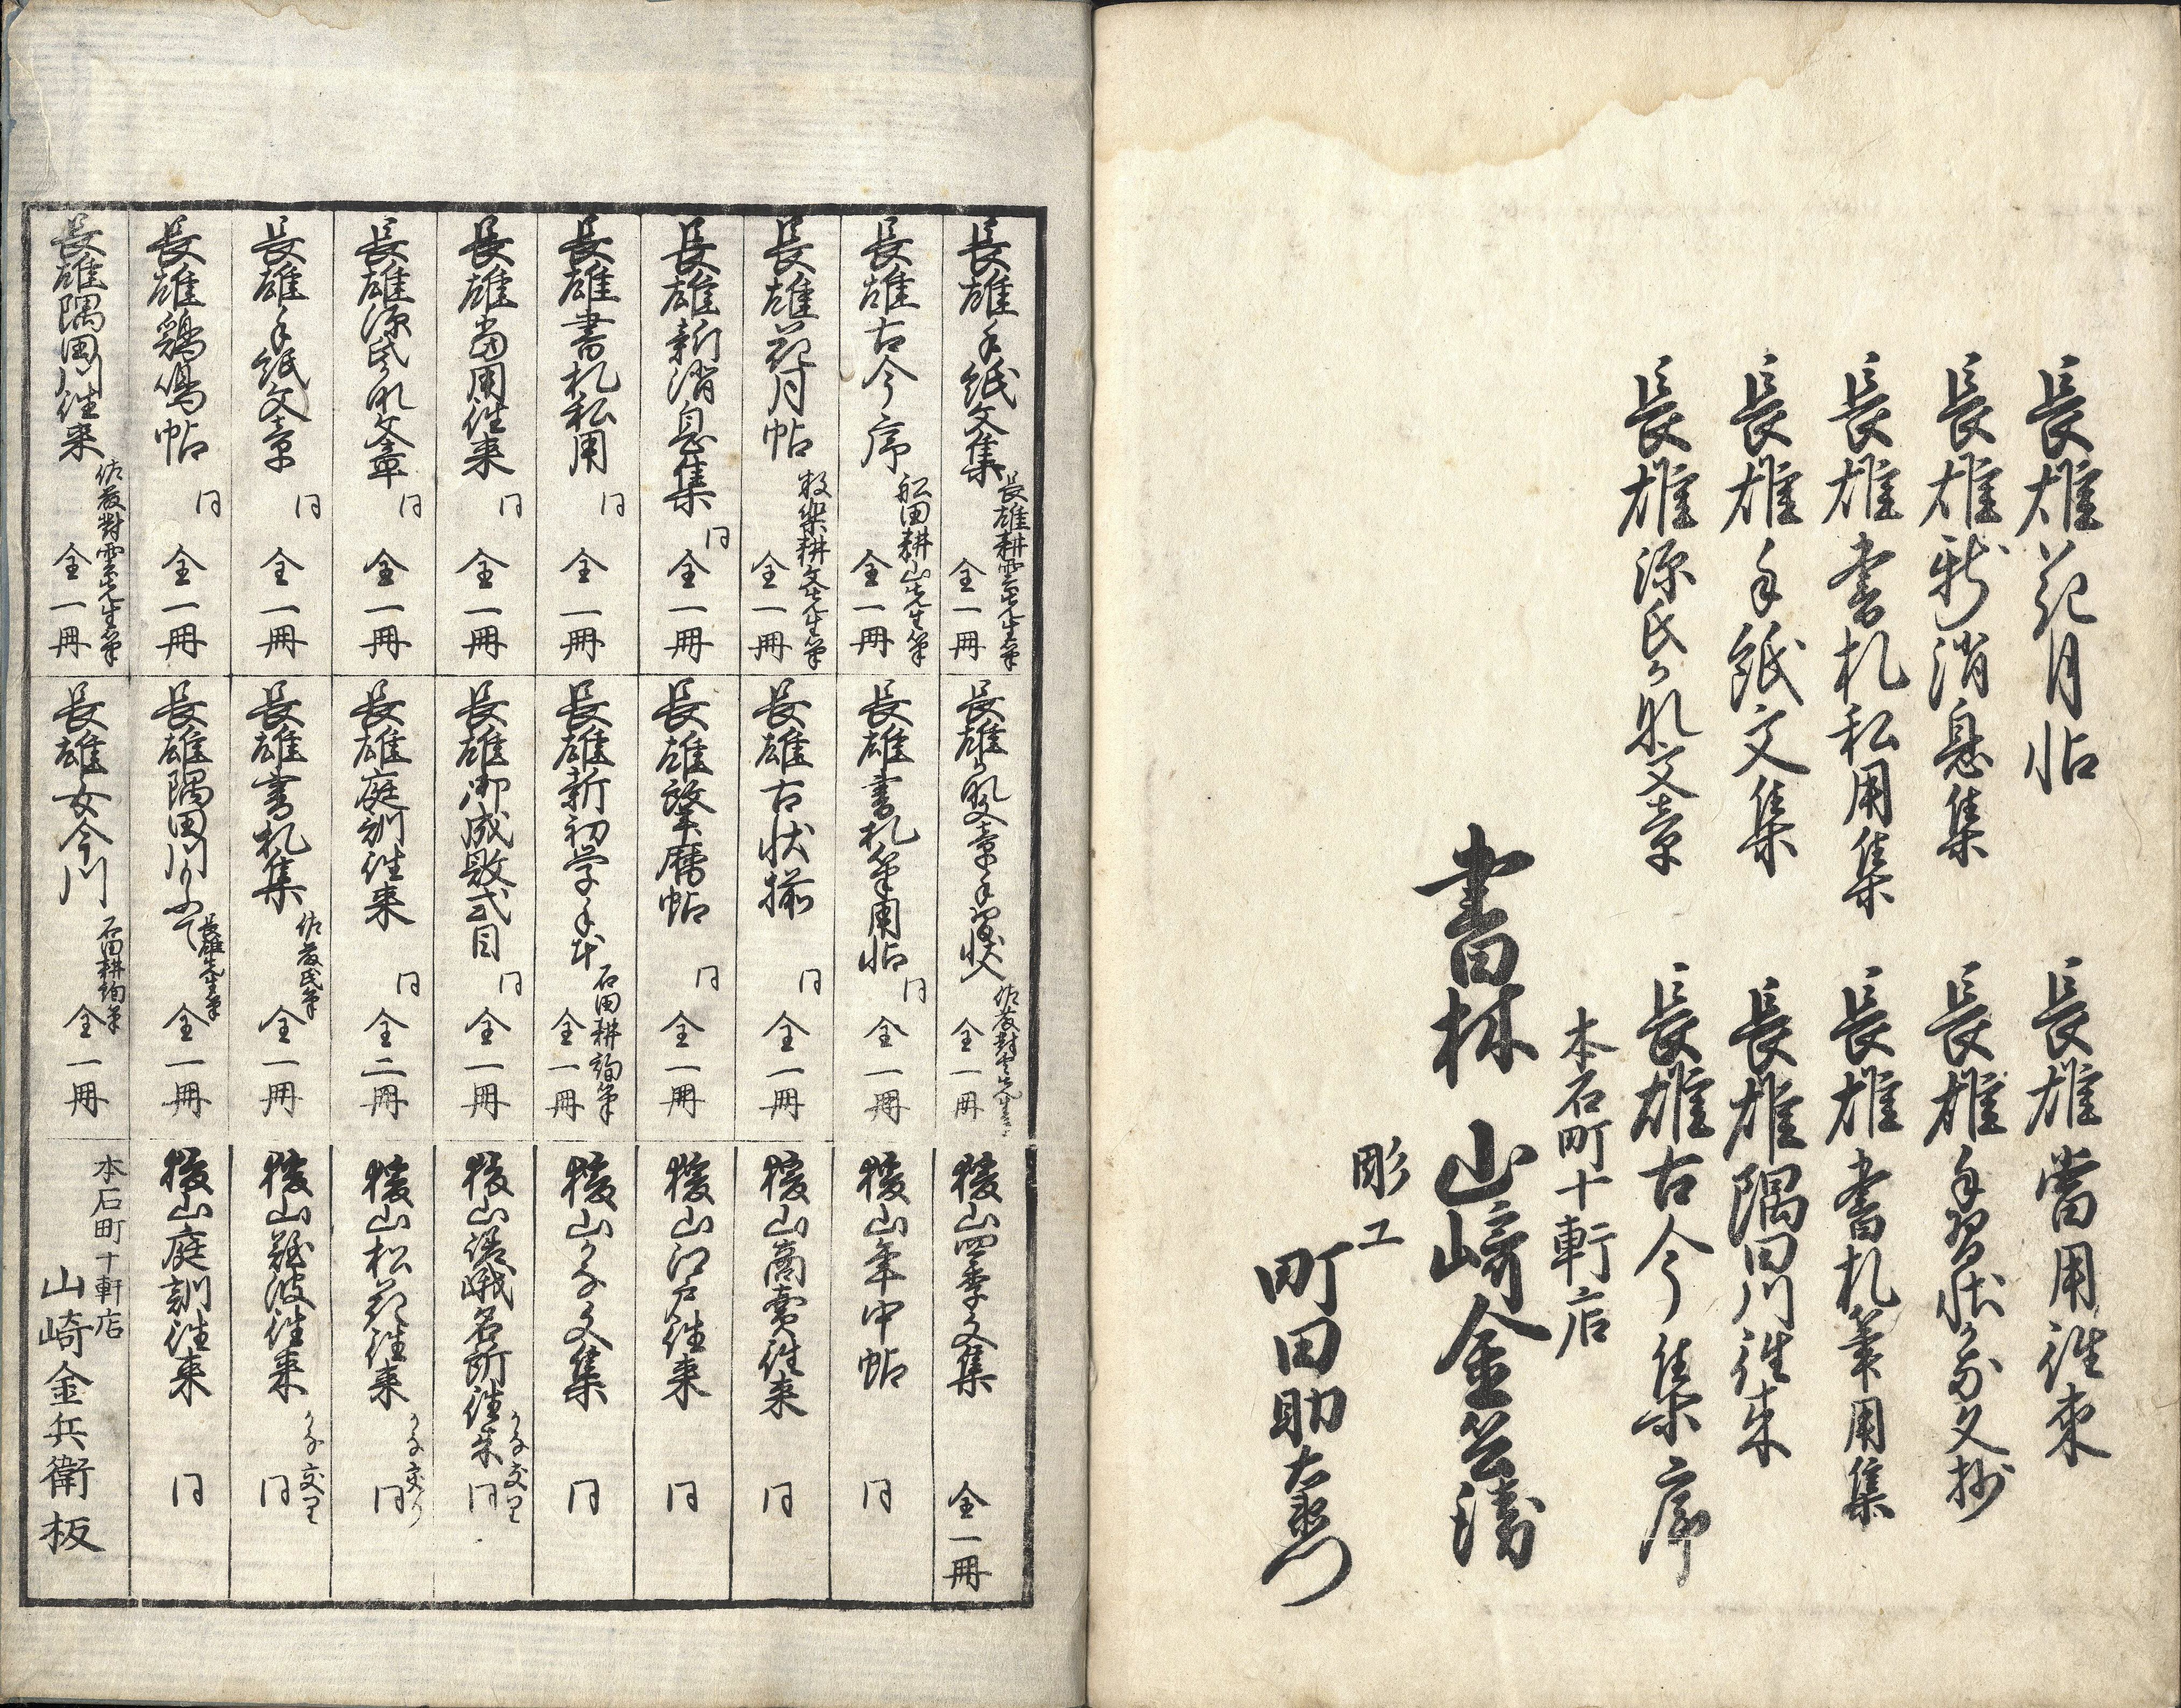 長雄花月帖
長雄新消息集
長雄書札私用集
長雄手紙文集
長雄源氏かな文章
長雄當用往来
長雄手習状かな文抄
長雄書札筆用集
長雄隅田川往来
長雄古今集序
本石町十軒店
書林 山﨑金兵衛
彫工
町田助右衛門
長雄手紙文集 長雄耕雲先生筆 全一冊
長雄古今序 舩田耕山先生筆 全一冊
長雄花月帖 耕文先生筆 全一冊
長雄新消息集 同 全一冊
長雄書札私用 同 全一冊
長雄當用往来 同 全一冊
長雄源氏かな文章 同 全一冊
長雄手紙文章 同 全一冊
長雄鶏鳴帖 同 全一冊
長雄隅田川往来 佐藤對雲先生筆 全一冊
長雄かな文章手習状 佐藤對雲先生 全一冊
長雄書札筆用帖 同 全一冊
長雄古状揃 同 全一冊
長雄肇暦帖 同 全一冊
長雄新初学手本 石田耕筆 全一冊
長雄御成敗式目 同 全一冊
長雄庭訓往来 同 全二冊
長雄書札集 佐藤氏筆 全一冊
長雄隅田川 長雄先生筆 全一冊
長雄女今川 石田耕筆 全一冊
稜山四季文集 全一冊
稜山年中帖 同
稜山商賣往来 同
稜山江戸往来 同
稜山かな文集 同
稜山嵯峨名所往来 かな交り 同
稜山松花往来 かな交り 同
稜山難波往来 かな交り 同
稜山庭訓往来 同
本石町十軒店
山崎金兵衛板